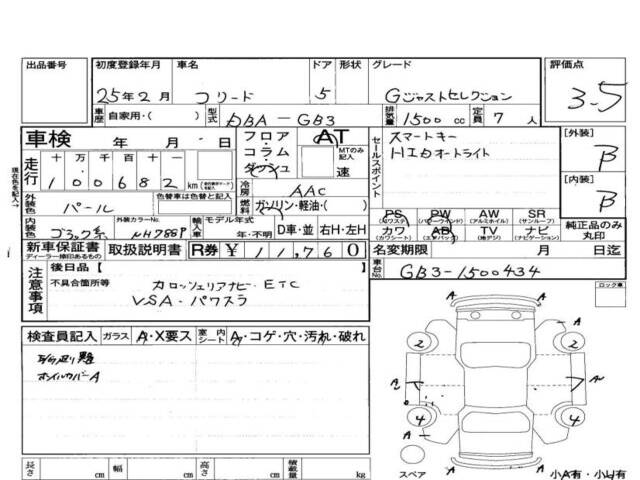 出品番号
初度登録年月 車名 ドア 形状 グレード 評価点
25年2月 フリード 5 Gジャストセレクション 3.5
車歴 自家用・( ) 型式 DBA-GB3 排気量 1500 cc 定員 7 人
車検 年 月 日
フロア コラム ダッシュ
AT
MTのみ記入 速
セールスポイント
スマートキー
HIDオートライト
[外装] B
[内装] B
現在色を記入→
走行 十 万 千 百 十 一
100682 km
冷房 AAC
外装色 パール
色替車は色替と記入
燃料 ガソリン・軽油・( )
PS (パワステ) PW (パワーウインド) AW (アルミホイル) SR (サンルーフ)
カワ (カワシート) AB (エアバッグ) TV (地デジ) ナビ (ナビゲーション)
純正品のみ丸印
内装色
外装カラーNo. NH788P
輸入車 モデル年式 年・不明 D車・並 右H・左H
新車保証書 ディーラー捺印あるもの
取扱説明書
R券 ¥ 11,760
名変期限 月 日迄
車台No. GB3-1500434
注意事項
後日品[ ]
不具合箇所等
カロッツェリアナビ・ETC
VSA・パワスラ
ロック車
検査員記入 ガラス A・X要ス 室内シート A・コゲ・穴・汚れ・破れ
ホイルカバーA
2 2
A A
4 4
A A
スペア
小A有・小U有
長さ cm 幅 cm 高さ cm 積載量 kg